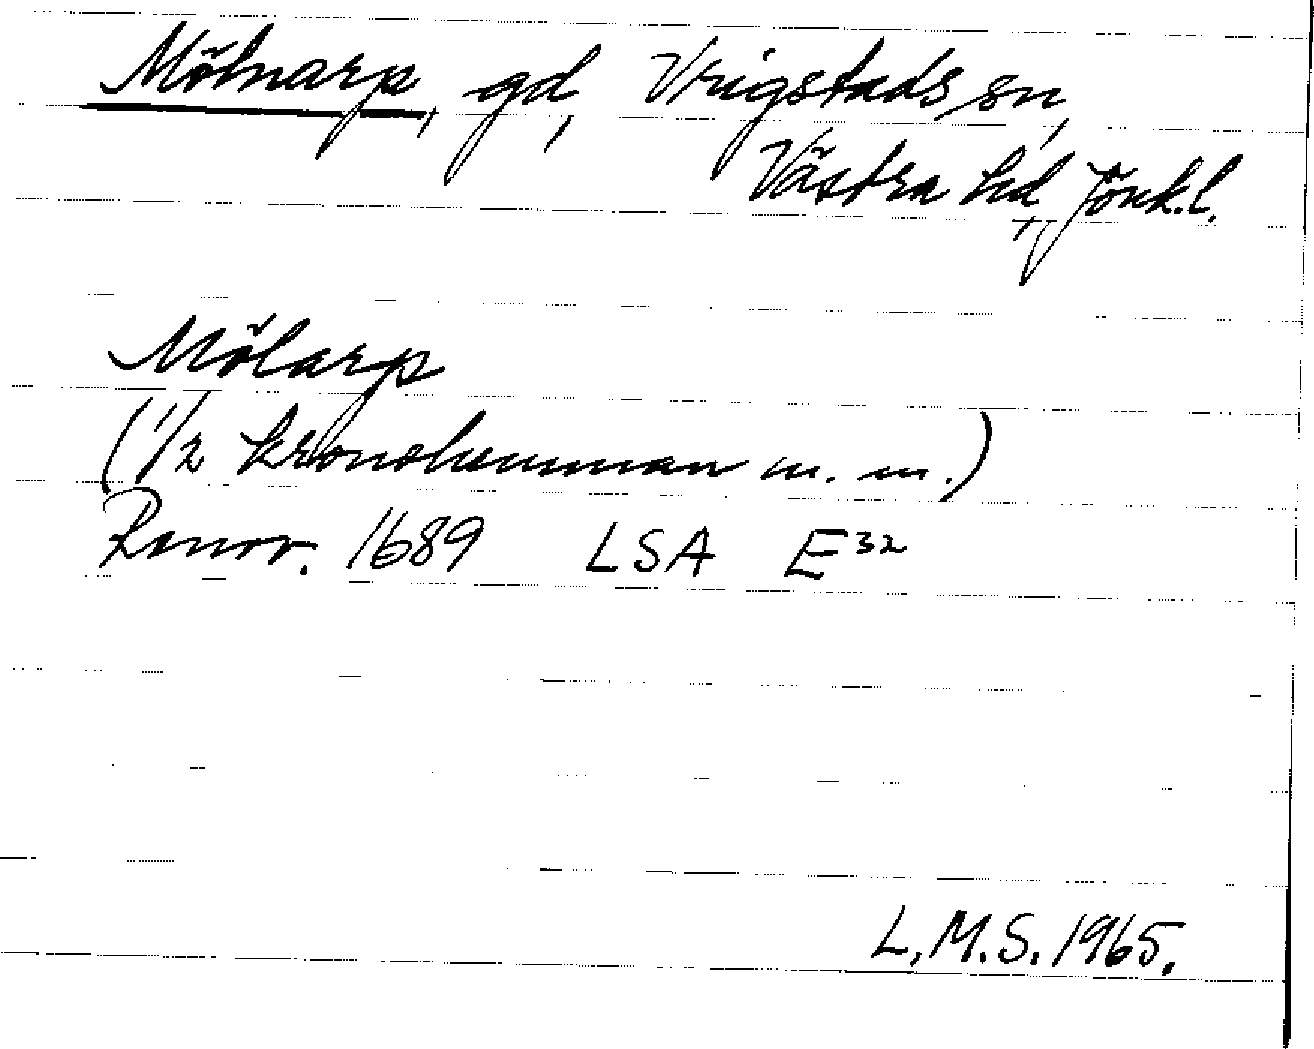 Mölnarp, gd, Vrigstads sn,
Västra hd, Jönk.l.
Mölarp
(1/2 kronohemman m. m.)
Renov. 1689 LSA E³²
L.M.S. 1965.